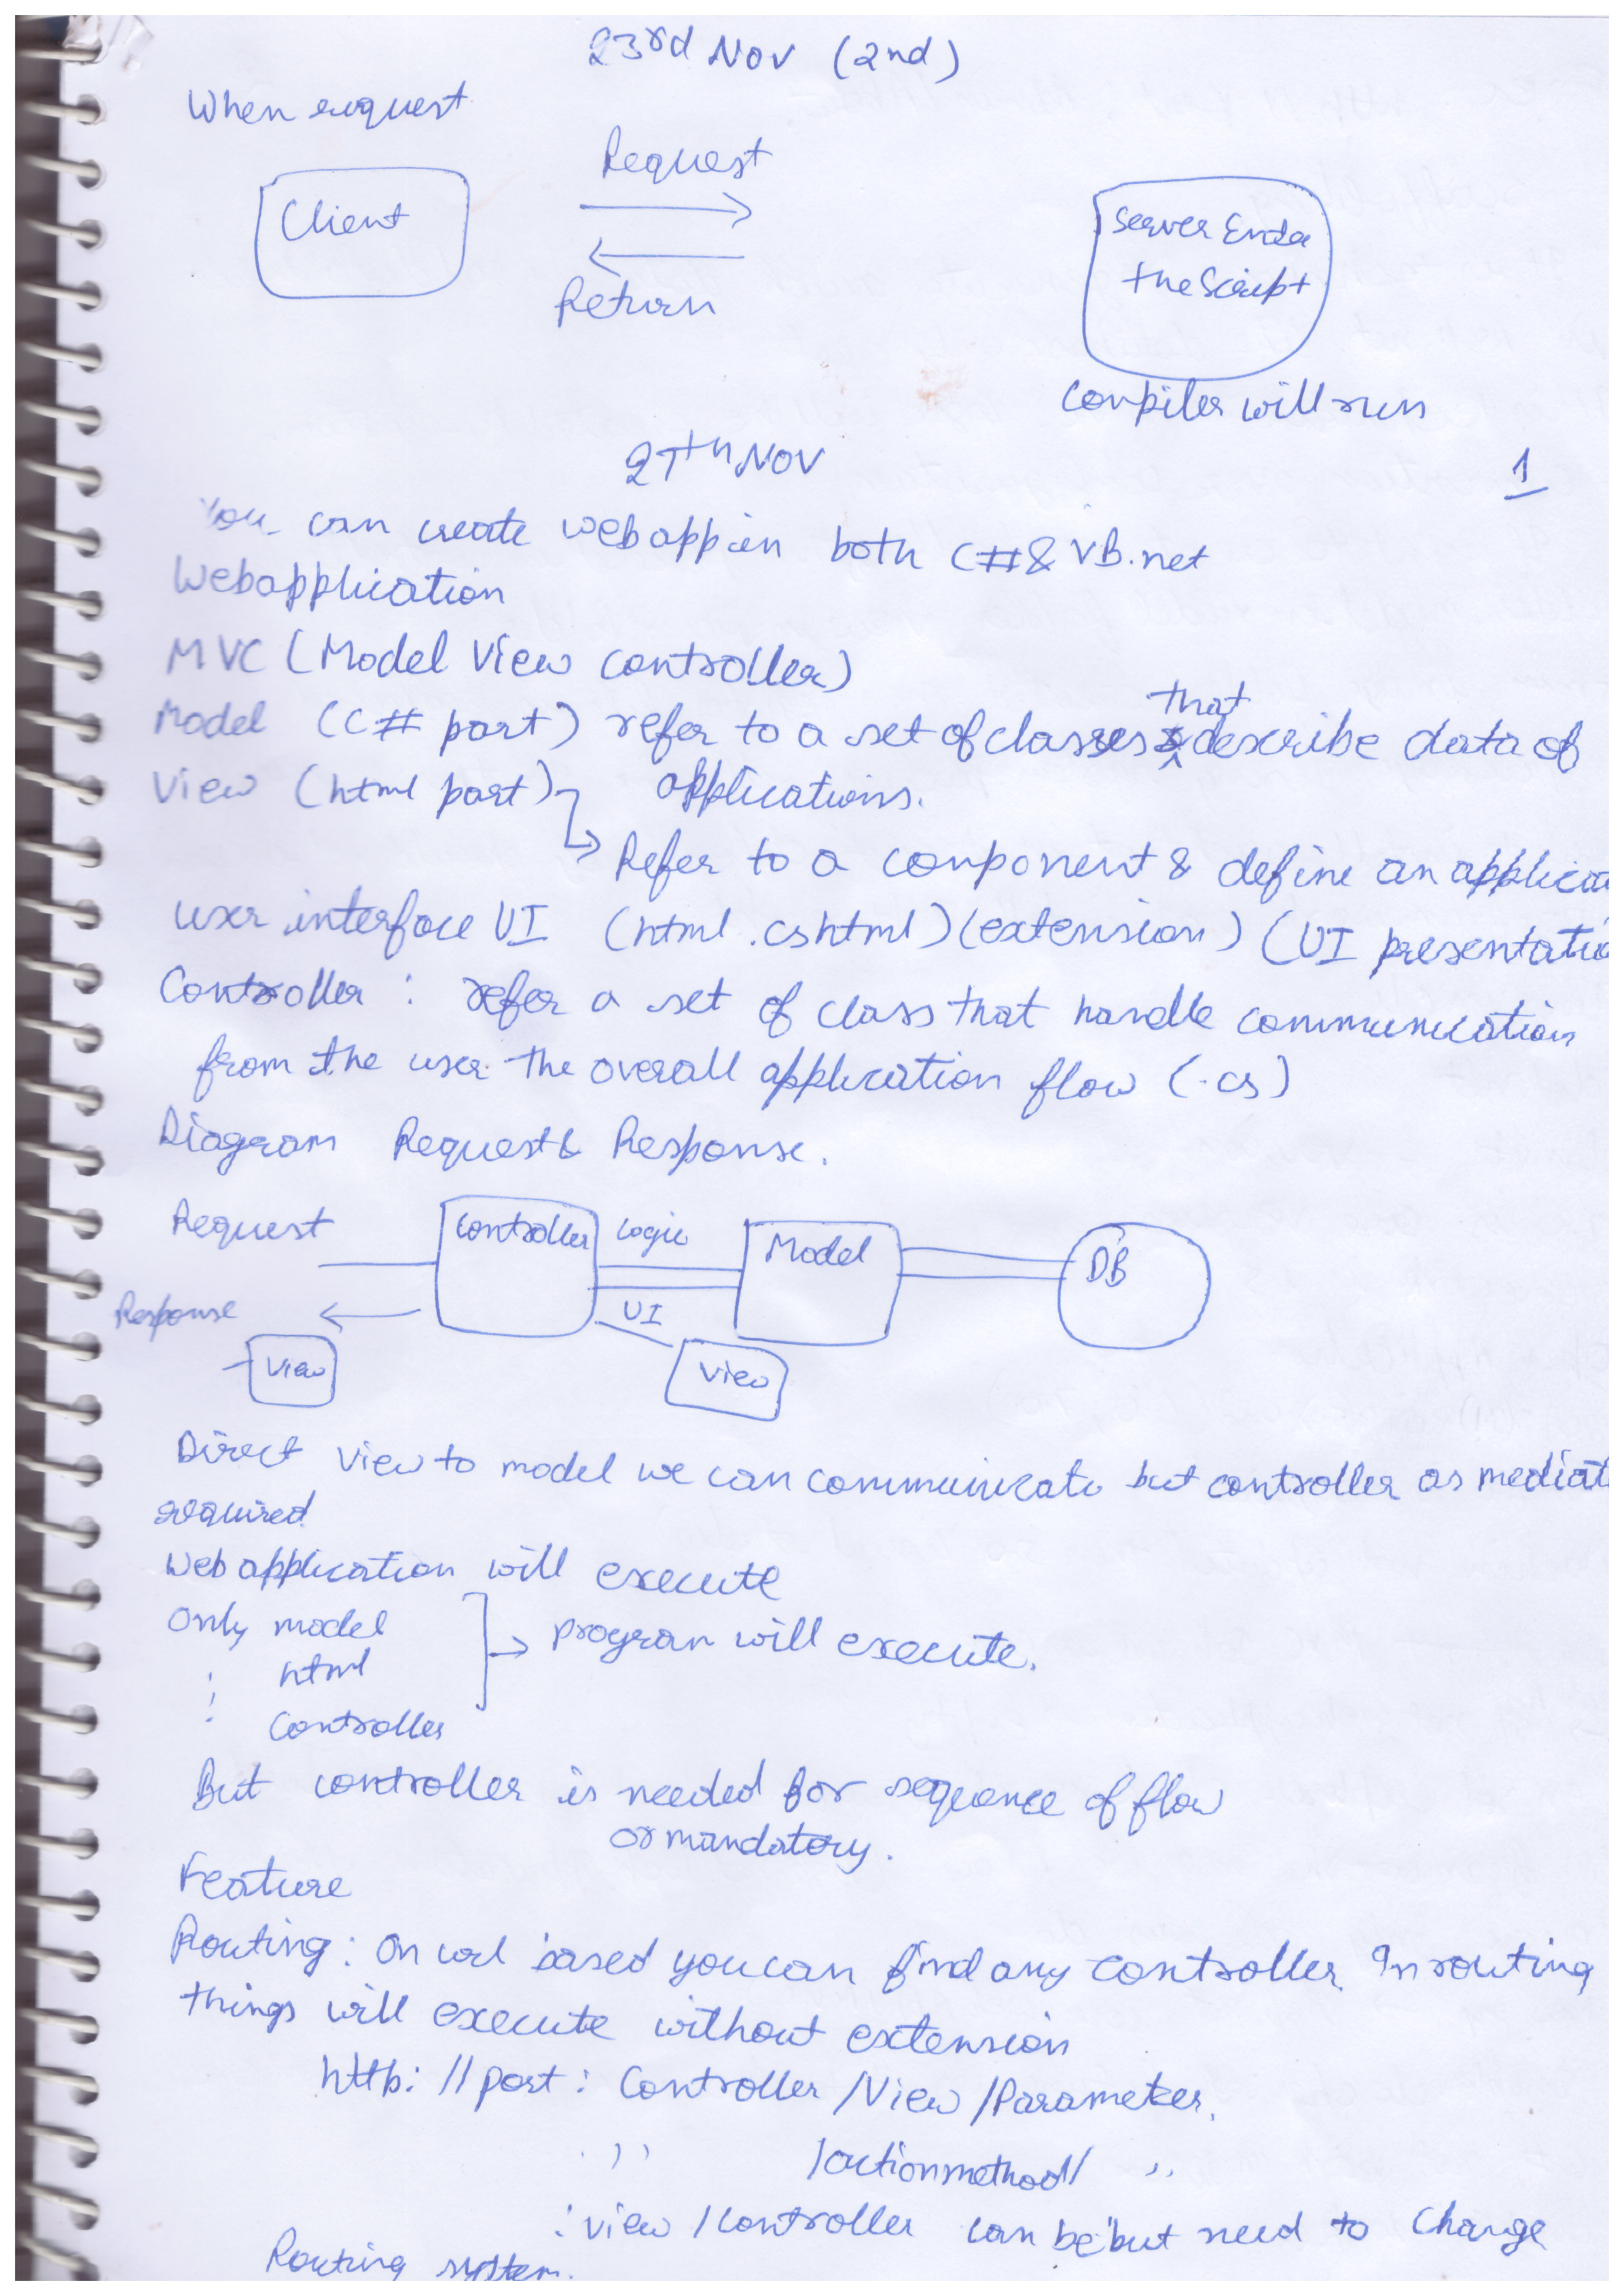 23rd Nov (2nd)
When request
Request
Client
Server
the Script
Return
Compiler will run
27th NOV
1
You can create web app in both C# & VB.net
Web application
MVC (Model View Controller)
that
Model (C# part) refer to a set of classes describe data of
View (html part) applications.
Refer to a component & define an applica
user interface UI (html .cshtml) (extension) (UI presentatio
Controller : refer a set of class that handle communication
from the user the overall application flow (.cs)
Diagram Request & Response.
Request Controller Logic Model DB
Response UI
View View
Direct view to model we can communicate but controller as mediat
required
Web application will execute
Only model
html → program will execute.
Controller
But controller is needed for sequence of flow
or mandatory.
Feature
Routing : On url based you can find any controller. In routing
things will execute without extension
http: // port : Controller /View /Parameter.
,, /actionmethod/ ,,
: view / controller can be but need to change
Routing system.